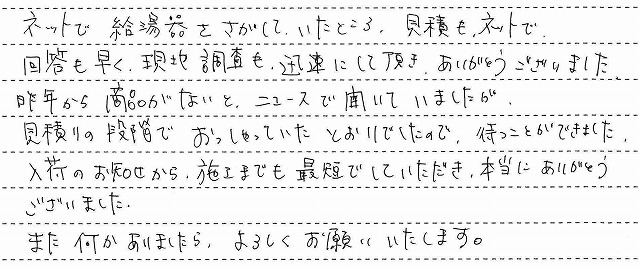 ネットで給湯器をさがして、いたところ、見積も、ネットで、
回答も早く、現地調査も、迅速にして頂き、ありがとうございました。
昨年から商品がないと、ニュースで聞いていましたが、
見積りの段階でおっしゃっていたとおりでしたので、待つことができました。
入荷のお知せから、施工までも最短でしていただき、本当にありがとう
ございました。
また何かありましたら、よろしくお願いいたします。